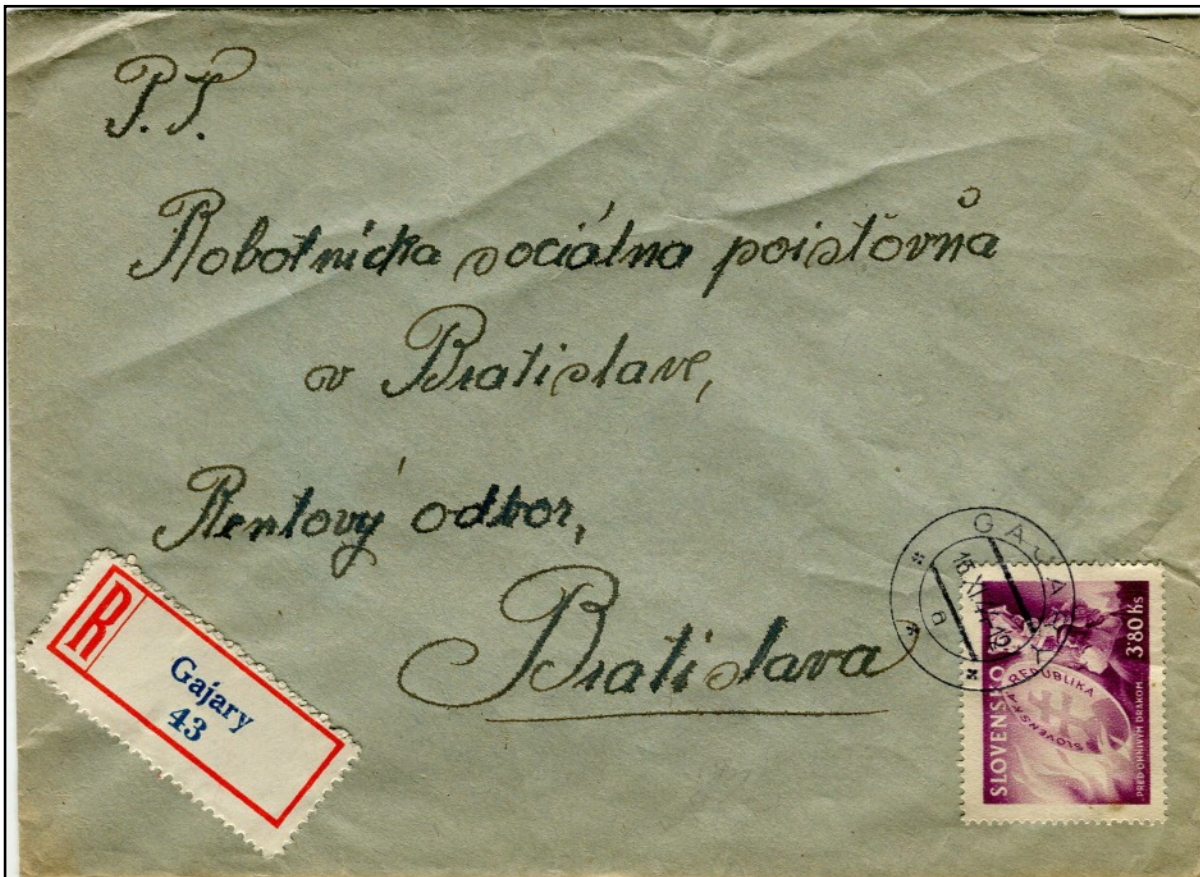 P. T.
Robotnícka sociálna poisťovňa
v Bratislave,
Rentový odbor,
Bratislava
R
Gajary
43
GAJARY
a
SLOVENSKO
SLOVENSKÁ REPUBLIKA
3·80 Ks
„PRED OHNIVÝM DRAKOM...